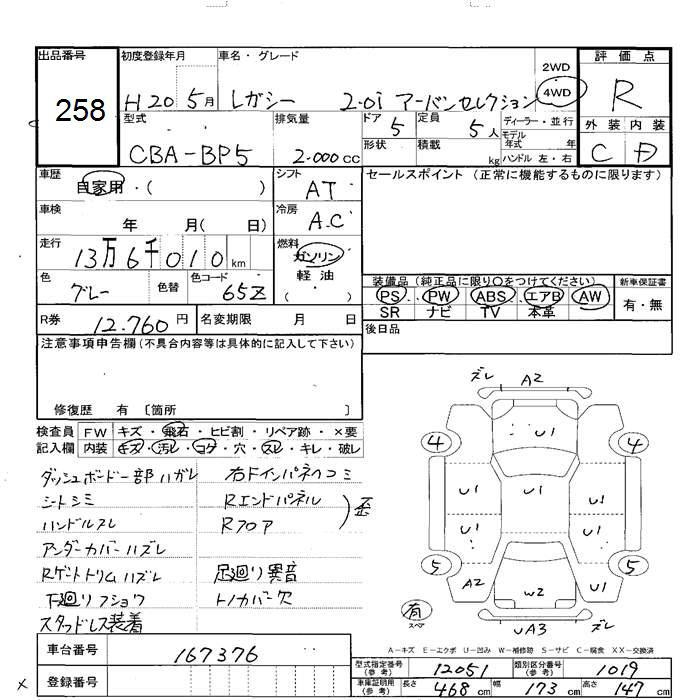 出品番号 258
初度登録年月 H20 5月
車名・グレード レガシー 2.0i アーバンセレクション
2WD
4WD
評価点 R
外装 C 内装 D
型式 CBA-BP5
排気量 2.000cc
ドア 5
定員 5人
形状
積載 kg
ディーラー・並行
モデル年式 年式
ハンドル 左・右
車歴 自家用・( )
シフト AT
セールスポイント(正常に機能するものに限ります)
車検 年 月( 日)
冷房 A.C
走行 13万6千010km
燃料 ガソリン
軽油
( )
色 グレー 色替
色コード 65Z
装備品(純正品に限り○をつけてください)
PS PW ABS エアB AW
SR ナビ TV 本革
新車保証書
有・無
R券 12.760円
名変期限 月 日
後日品
注意事項申告欄(不具合内容等は具体的に記入して下さい)
修復歴 有 〔箇所 〕
検査員記入欄
FW キズ・飛石・ヒビ割・リペア跡・×要
内装 キズ・汚レ・コゲ・穴・スレ・キレ・破レ
ダッシュボード一部ハガレ
シートシミ
ハンドルスレ
アンダーカバーハズレ
Rゲートトリムハズレ
下廻りフショク
スタッドレス装着
右Fインパネヘコミ
Rエンドパネル
Rフロア
歪
足廻り異音
トノカバー欠
ズレ A2
4 U1 4
U1 U1 U1
U1 U1
5 5
A2 W2 U1
有
スペア
UA3 ズレ
A-キズ E-エクボ U-凹み W-補修跡 S-サビ C-腐食 XX-交換済
車台番号 167376
登録番号
型式指定番号(参考) 12051
類別区分番号(参考) 1019
車庫証明用(参考) 長さ 468cm 幅 173cm 高さ 147cm